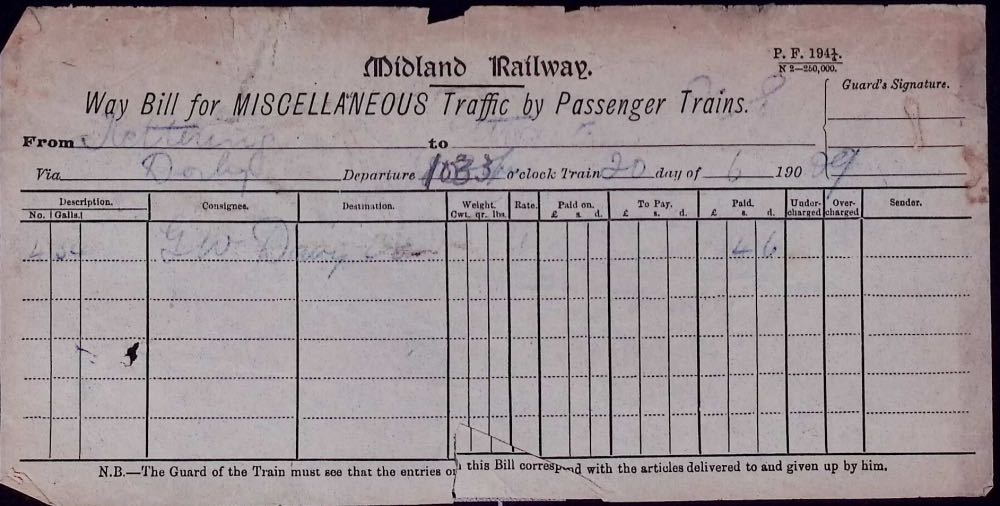 P. F. 194½.
Midland Railway.
N 2—250,000.
Guard's Signature.
Way Bill for MISCELLANEOUS Traffic by Passenger Trains.
From Kettering to
Via Derby Departure 1033 o'clock Train 20 day of 6 190 09
Description. Consignee. Destination. Weight. Rate. Paid on. To Pay. Paid. Under-charged Over-charged Sender.
No. Galls. Cwt. qr. lbs. £ s. d. £ s. d. £ s. d.
G W Davy 4 6
N.B.—The Guard of the Train must see that the entries on this Bill correspond with the articles delivered to and given up by him.